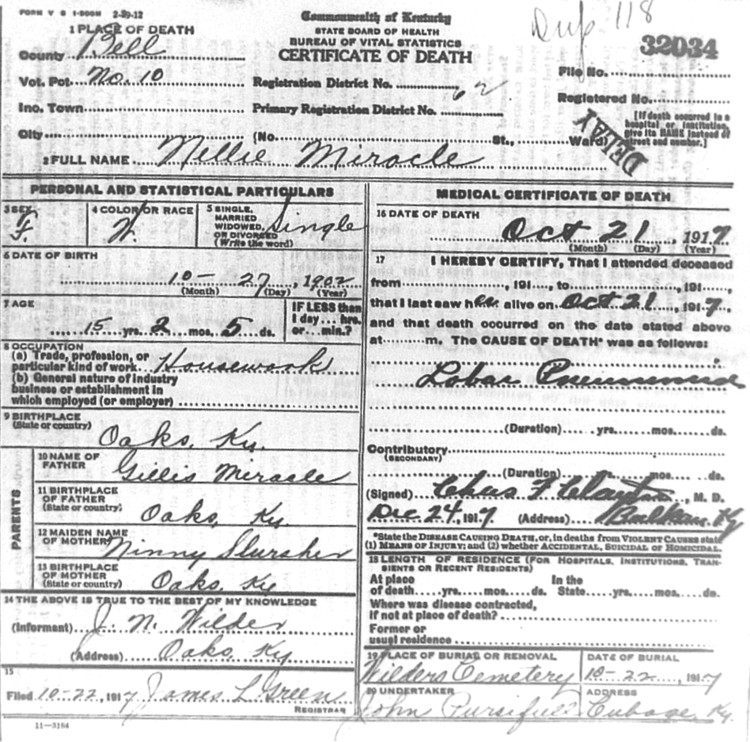 FORM V S 1-500M 2-29-12
Commonwealth of Kentucky
STATE BOARD OF HEALTH
BUREAU OF VITAL STATISTICS
CERTIFICATE OF DEATH
Dup 118
32034
1 PLACE OF DEATH
County Bell
Vot. Pct. No. 10
Inc. Town
City
Registration District No. 62
Primary Registration District No.
(No. St., Ward)
File No.
Registered No.
[If death occurred in a hospital or institution, give its NAME instead of street and number.]
DELAY
2 FULL NAME Nellie Miracle
PERSONAL AND STATISTICAL PARTICULARS
3 SEX F.
4 COLOR OR RACE W.
5 SINGLE, MARRIED WIDOWED, OR DIVORCED (Write the word) Single
6 DATE OF BIRTH
10- 27, 1902
(Month) (Day) (Year)
7 AGE
15 yrs. 2 mos. 5 ds.
IF LESS than 1 day ... hrs. or ... min.?
8 OCCUPATION
(a) Trade, profession, or particular kind of work Housework
(b) General nature of industry business or establishment in which employed (or employer)
9 BIRTHPLACE
(State or country) Oaks, Ky.
PARENTS
10 NAME OF FATHER Gillis Miracle
11 BIRTHPLACE OF FATHER (State or country) Oaks, Ky.
12 MAIDEN NAME OF MOTHER Ninny Slusher
13 BIRTHPLACE OF MOTHER (State or country) Oaks, Ky
14 THE ABOVE IS TRUE TO THE BEST OF MY KNOWLEDGE
(Informant) J. N. Wilder
(Address) Oaks, Ky
15
Filed 10-22, 1917 James L. Green
REGISTRAR
11-3184
MEDICAL CERTIFICATE OF DEATH
16 DATE OF DEATH
Oct 21, 1917
(Month) (Day) (Year)
17 I HEREBY CERTIFY, That I attended deceased
from, 191, to, 191,
that I last saw her alive on Oct 21, 1917,
and that death occurred on the date stated above
at m. The CAUSE OF DEATH* was as follows:
Lobar Pneumonia
(Duration) yrs. mos. ds.
Contributory
(SECONDARY)
(Duration) mos. ds.
(Signed) Chas F Clayton, M. D.
Dec 24, 1917 (Address) Balkan, Ky
*State the DISEASE CAUSING DEATH, or, in deaths from VIOLENT CAUSES state
(1) MEANS OF INJURY; and (2) whether ACCIDENTAL, SUICIDAL or HOMICIDAL.
18 LENGTH OF RESIDENCE (FOR HOSPITALS, INSTITUTIONS, TRANSIENTS OR RECENT RESIDENTS)
At place of death yrs. mos. ds. In the State yrs. mos. ds.
Where was disease contracted, if not at place of death?
Former or usual residence
19 PLACE OF BURIAL OR REMOVAL
Wilders Cemetery
DATE OF BURIAL
10-22, 1917
20 UNDERTAKER
John Pursiful
ADDRESS
Cubage, Ky.